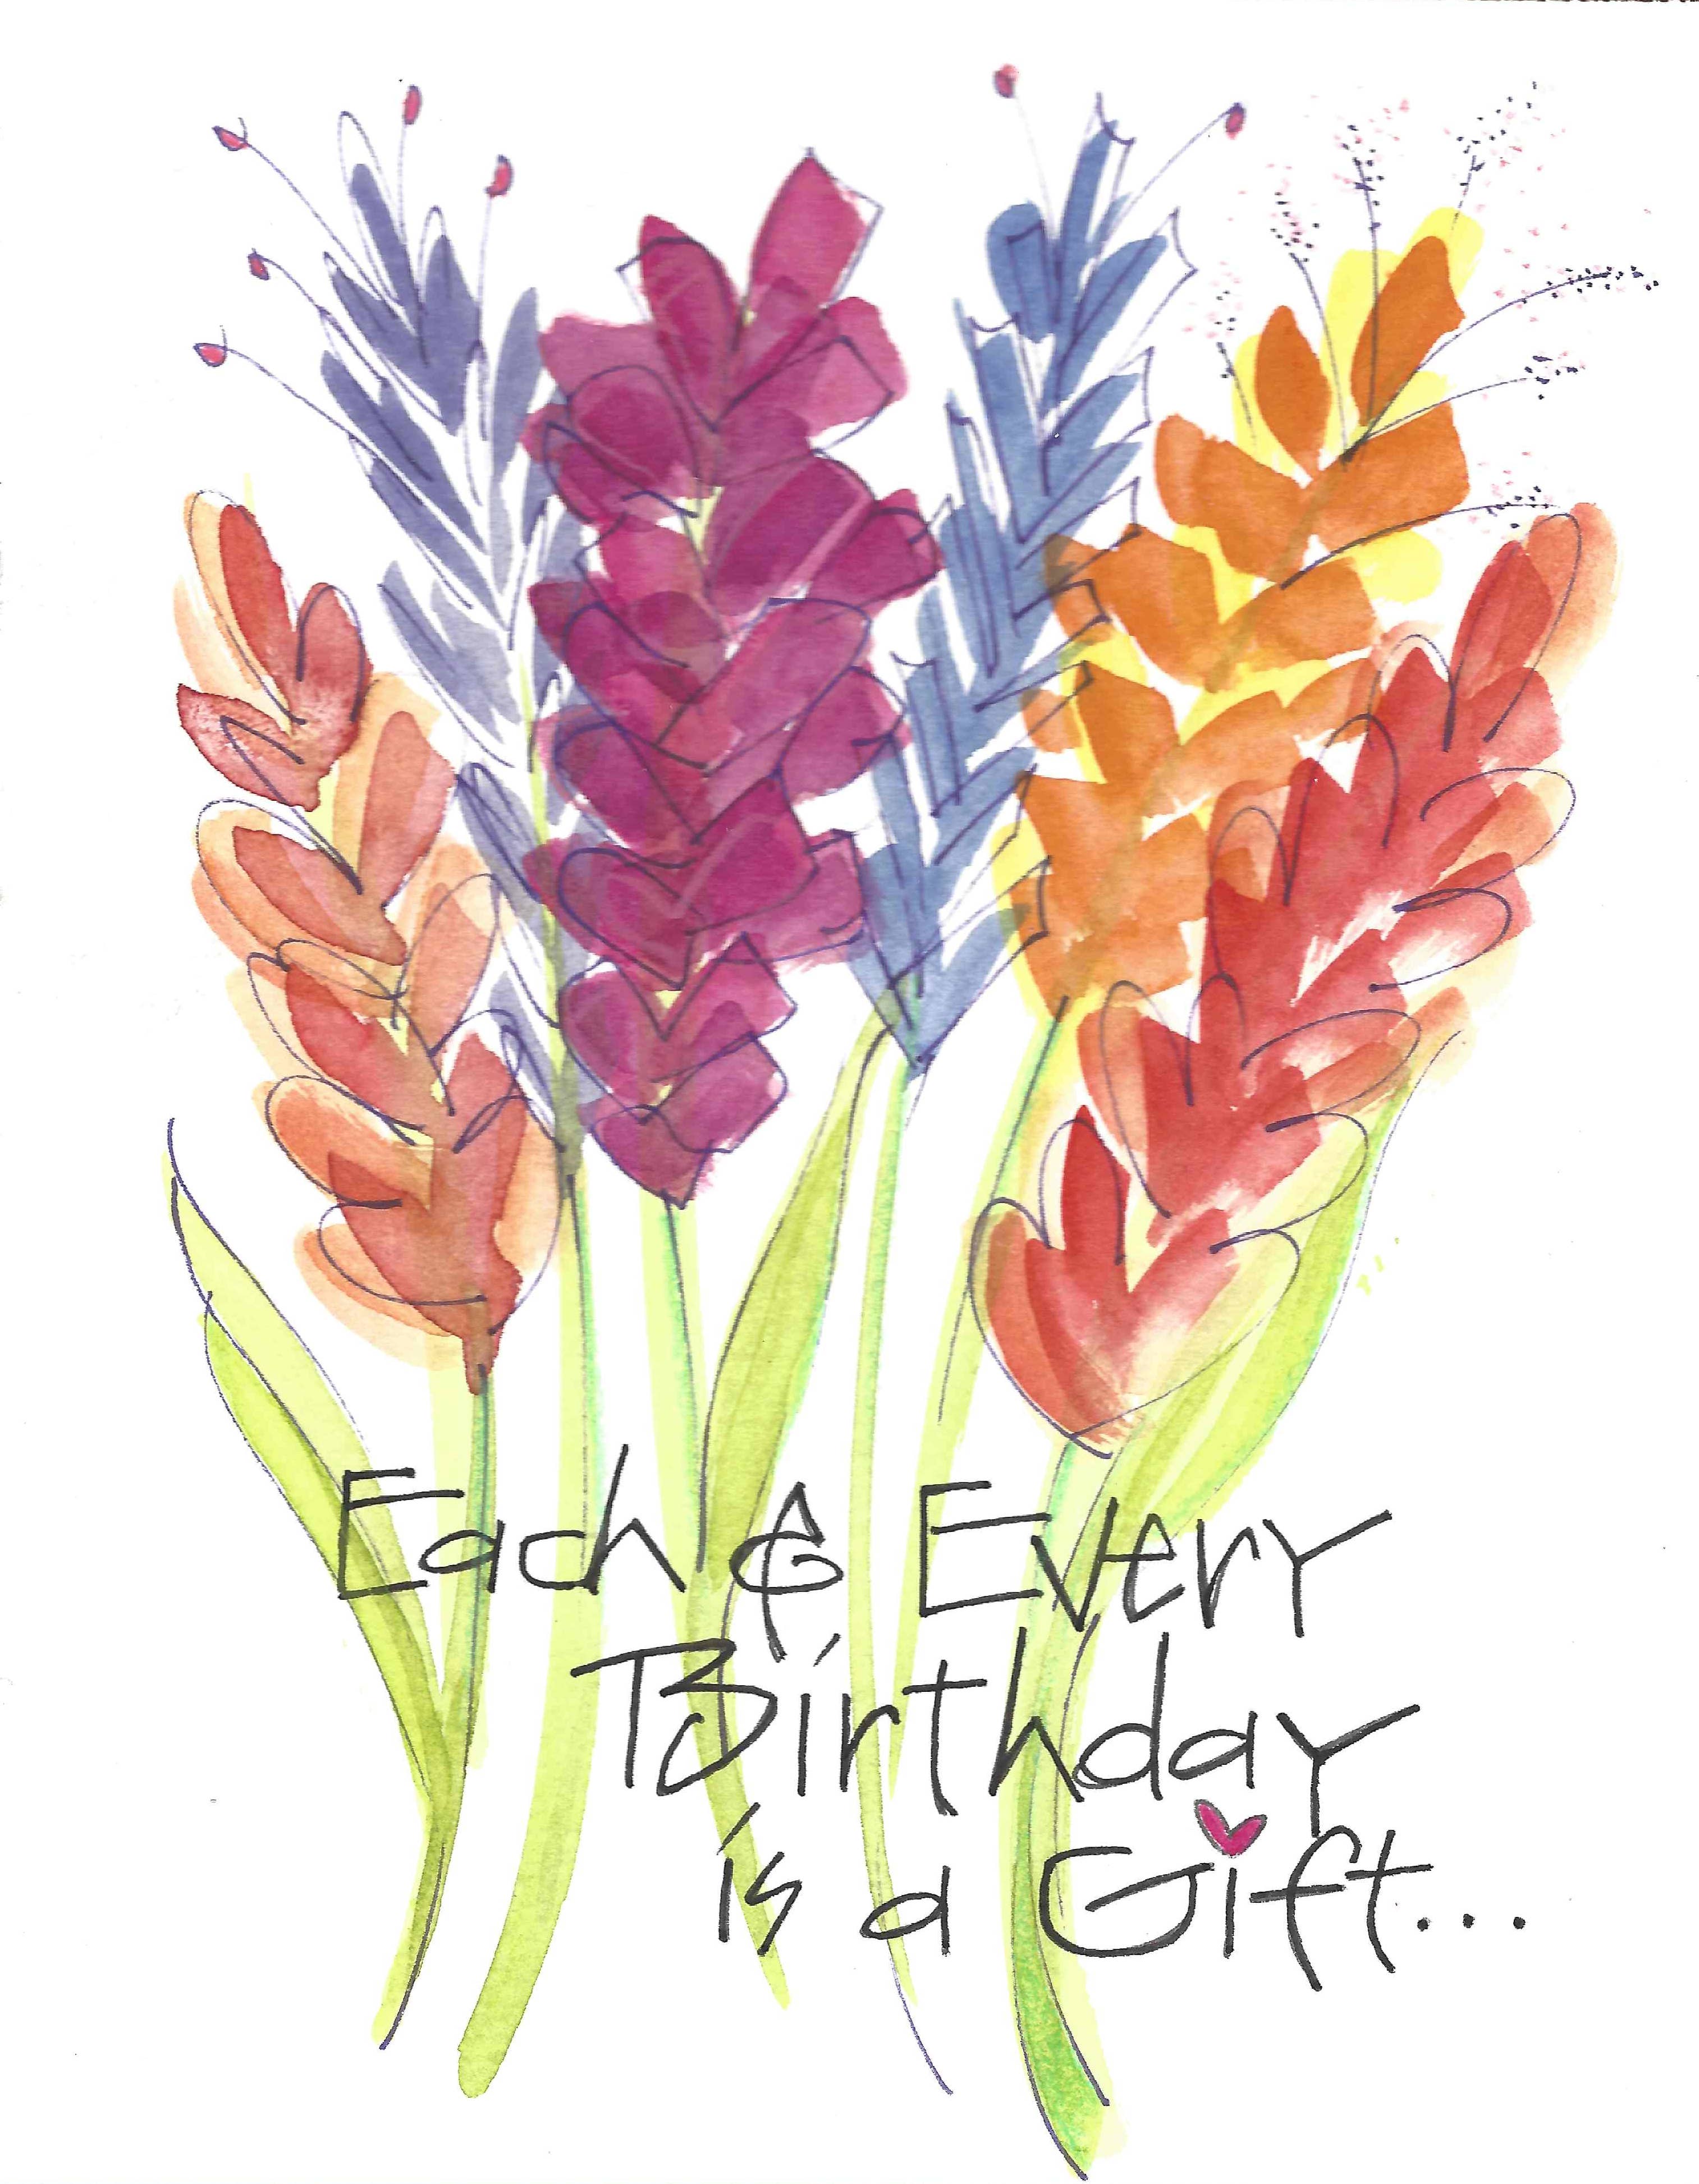 Each & Every
Birthday
is a Gift...